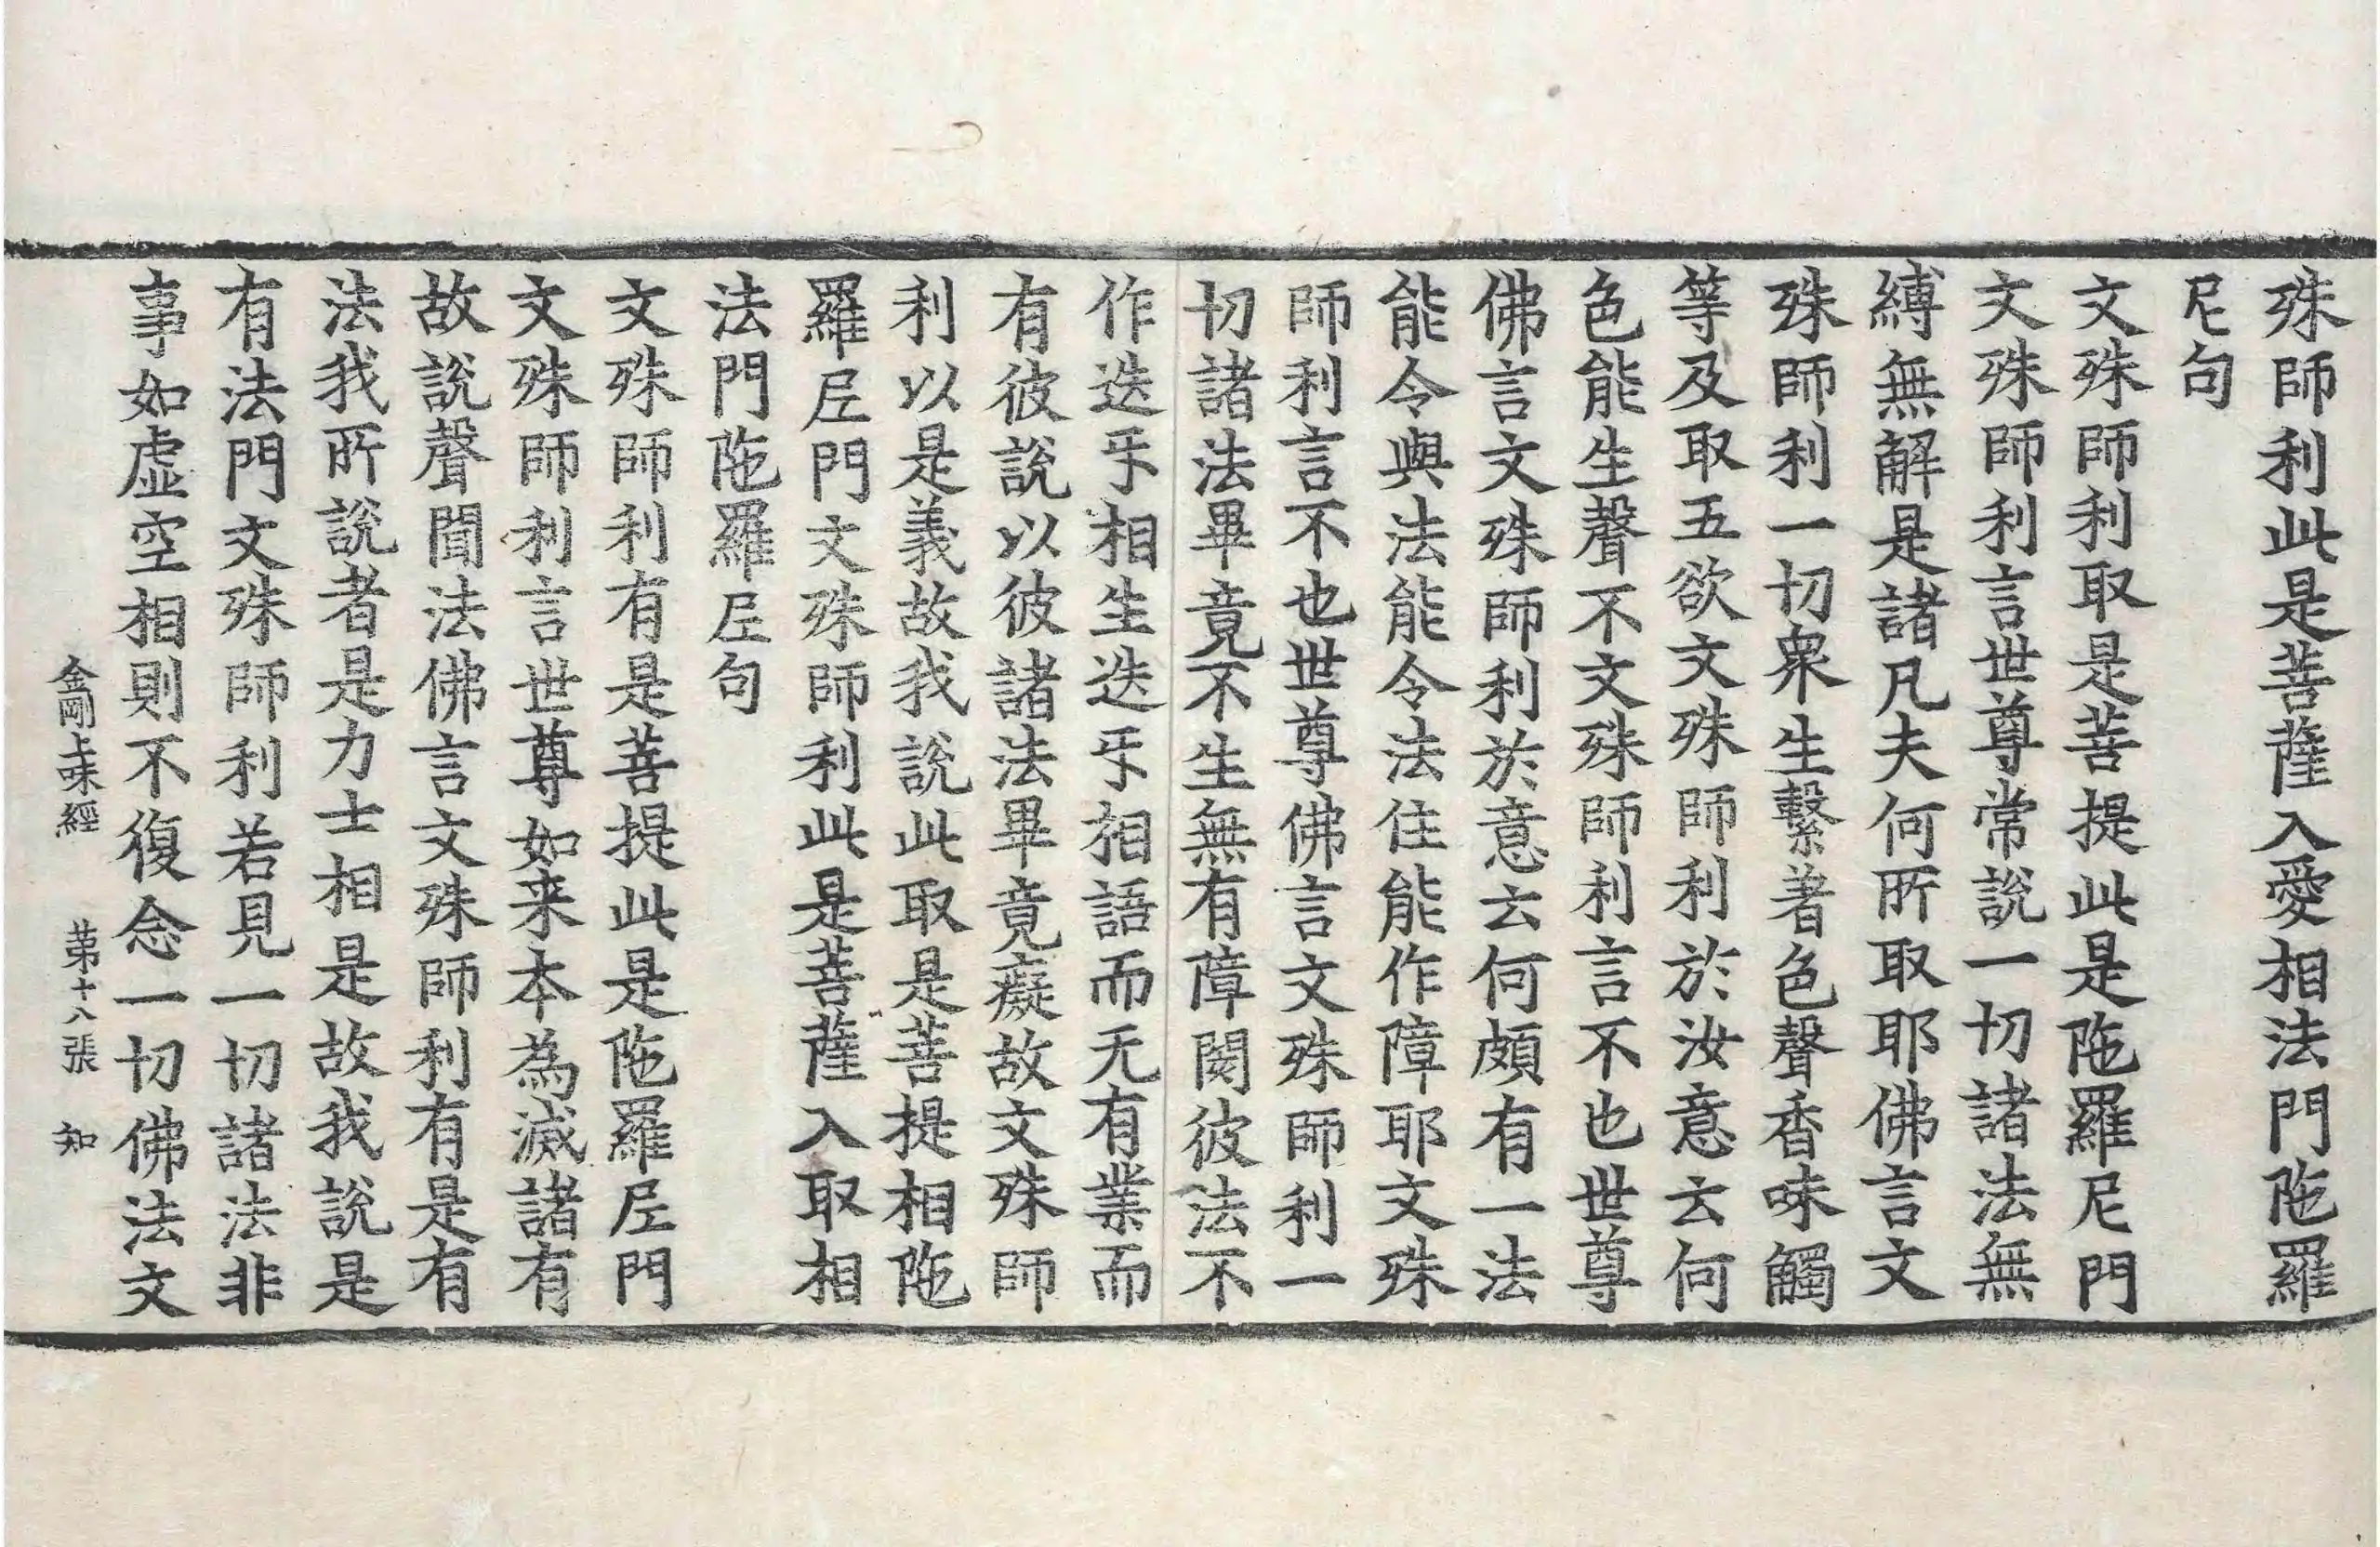 殊師利此是菩薩入愛相法門陁羅
尼句
文殊師利取是菩提此是陁羅尼門
文殊師利言世尊常說一切諸法無
縛無解是諸凡夫何所取耶佛言文
殊師利一切衆生繫著色聲香味觸
等及取五欲文殊師利於汝意云何
色能生聲不文殊師利言不也世尊
佛言文殊師利於意云何頗有一法
能令與法能令法住能作障耶文殊
師利言不也世尊佛言文殊師利一
切諸法畢竟不生無有障閡彼法不
作迭乑相生迭乑相語而无有業而
有彼說以彼諸法畢竟癡故文殊師
利以是義故我說此取是菩提相陁
羅𡰱門文殊師利此是菩薩入取相
法門陁羅𡰱句
文殊師利有是菩提此是陁羅𡰱門
文殊師利言世尊如来本為滅諸有
故說聲聞法佛言文殊師利有是有
法我所說者是力士相是故我說是
有法門文殊師利若見一切諸法非
事如虛空相則不復念一切佛法文
金剛上味經 苐十八張 知